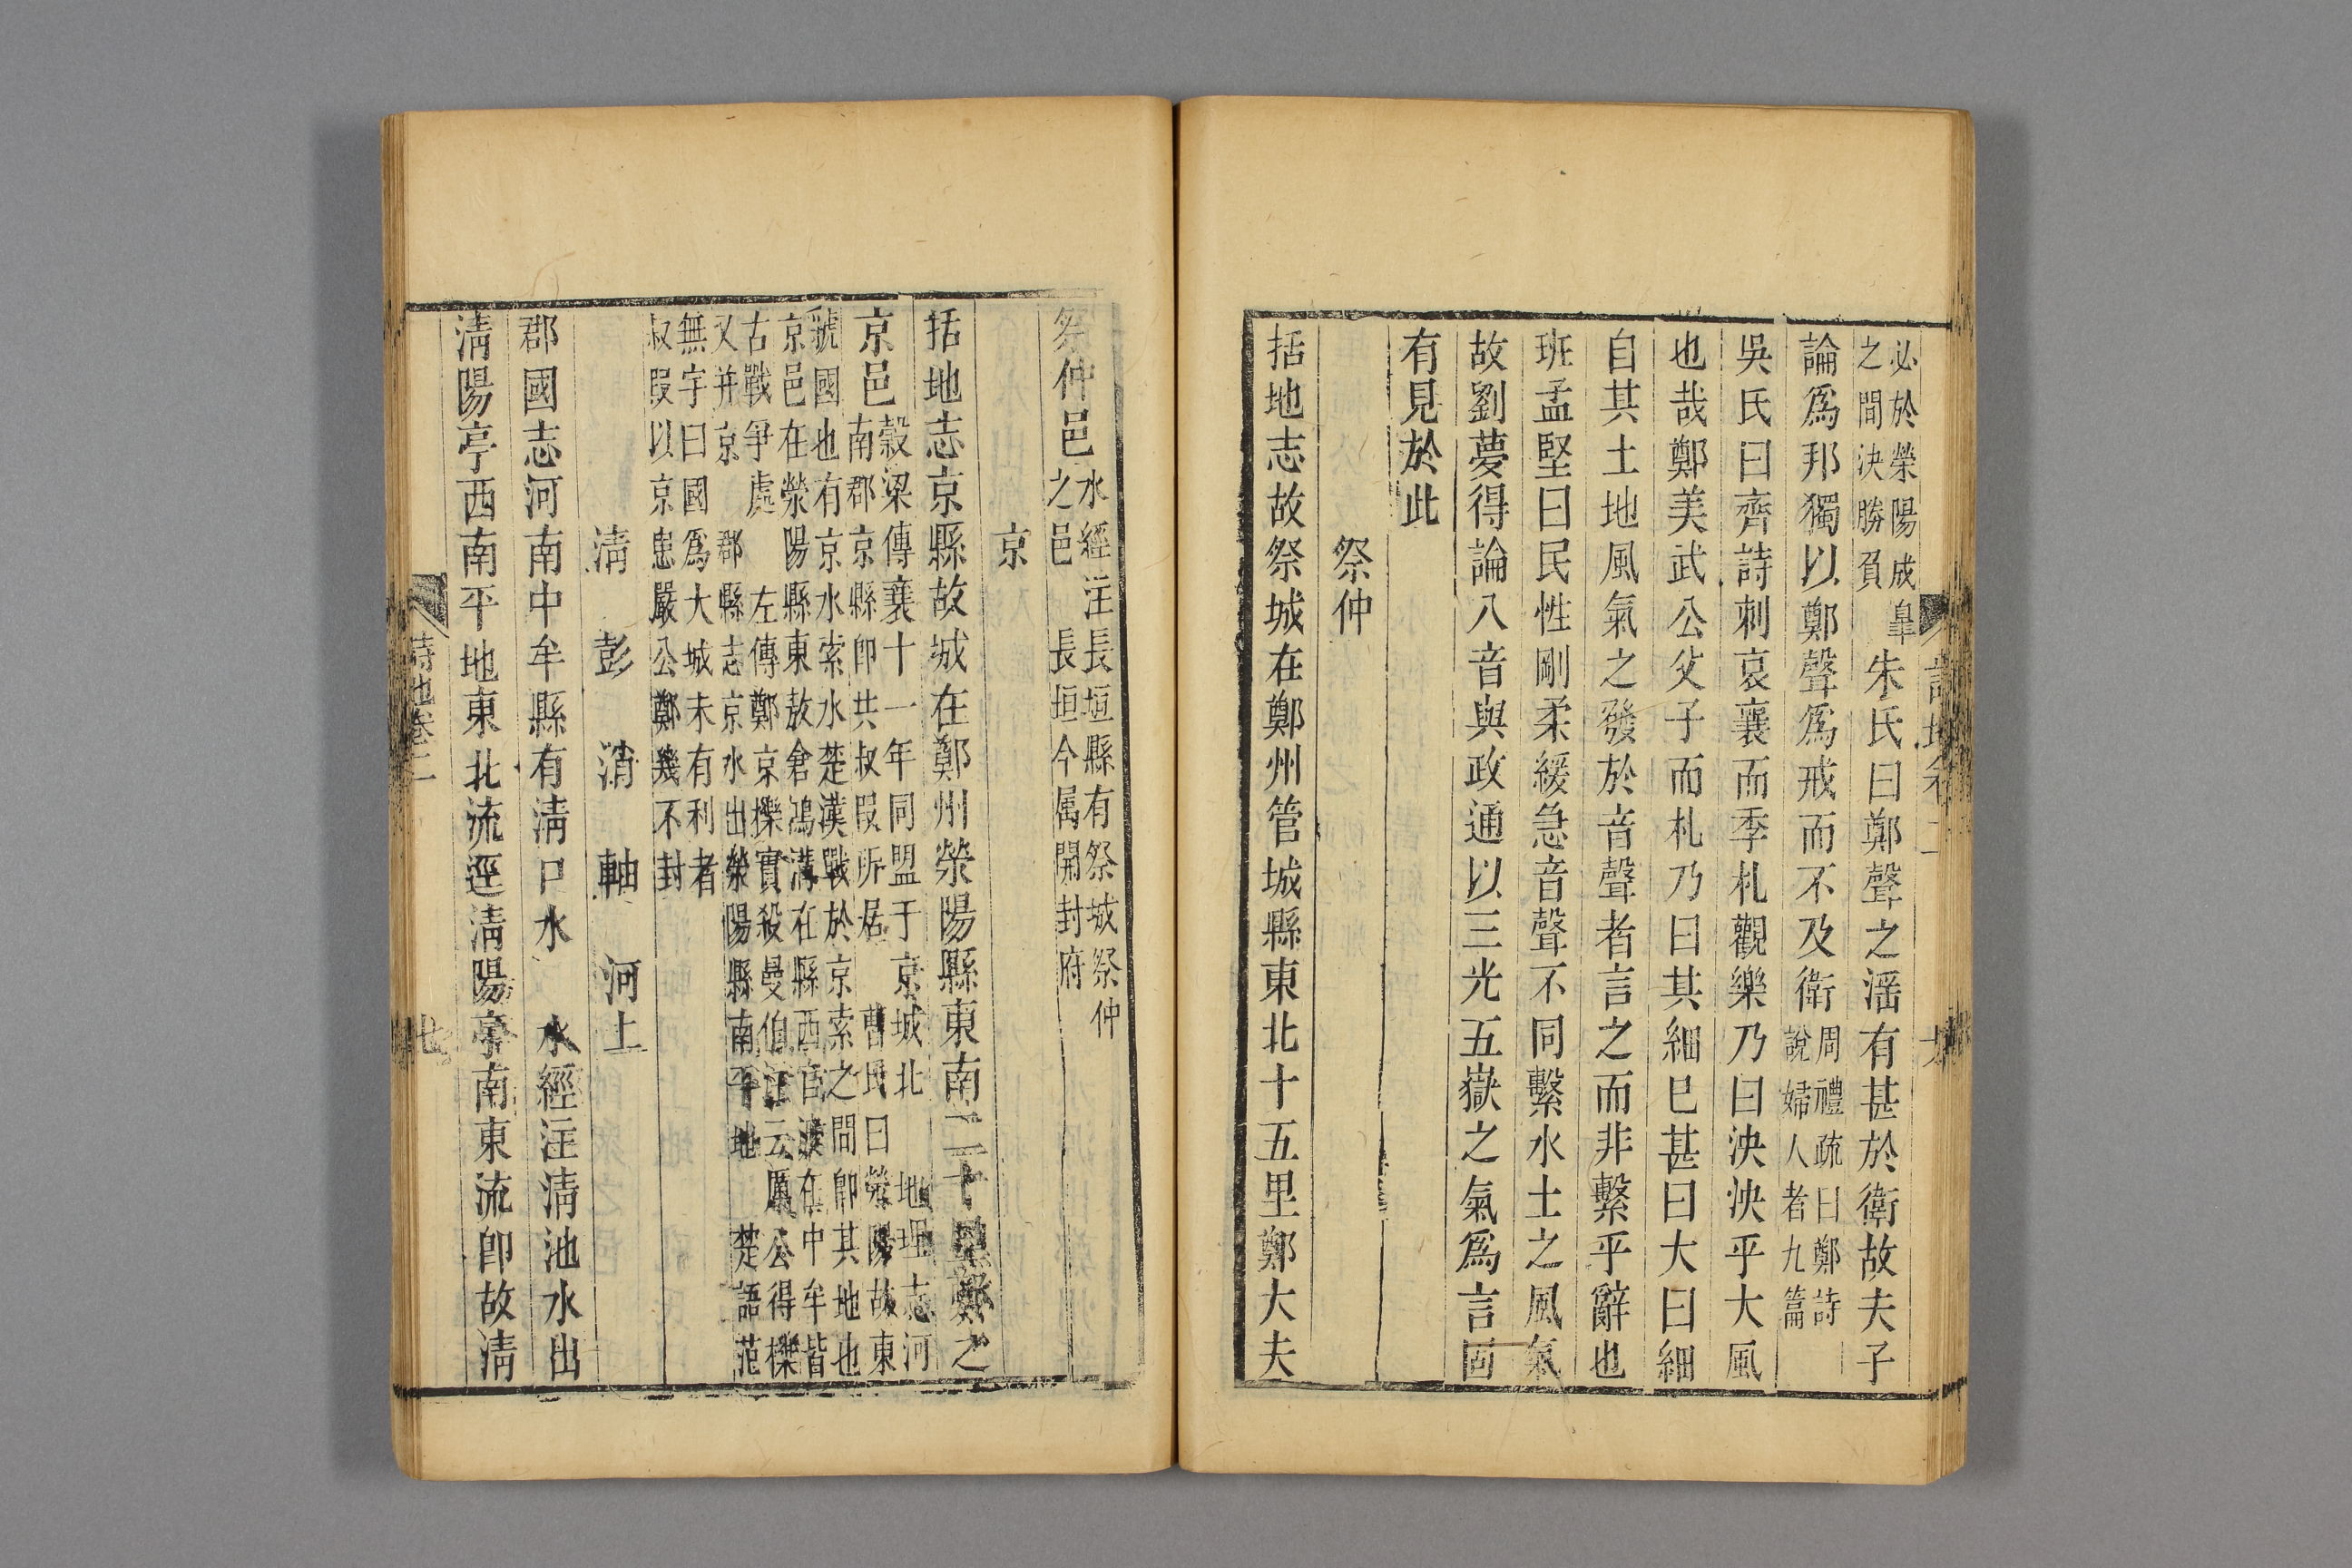 必於滎陽成皐
之間決勝負
朱氏曰鄭聲之滛有甚於衛故夫子
論爲邦獨以鄭聲爲戒而不及衛
周禮疏曰鄭詩
說婦人者九篇
吳氏曰齊詩刺哀襄而季札觀樂乃曰泱泱乎大風
也哉鄭美武公父子而札乃曰其細已甚曰大曰細
自其土地風氣之發於音聲者言之而非繫乎辭也
班孟堅曰民性剛柔緩急音聲不同繫水土之風氣
故劉夢得論八音與政通以三光五嶽之氣爲言固
有見於此
祭仲
括地志故祭城在鄭州管城縣東北十五里鄭大夫
祭仲邑
水經注長垣縣有祭城祭仲
之邑 長垣今属開封府
京
括地志京縣故城在鄭州滎陽縣東南二十里鄭之
京邑
穀梁傳襄十一年同盟于京城北 地理志河
南郡京縣卽共叔叚所居 曹氏曰滎陽故東
虢國也有京水索水楚漢戰於京索之間卽其地也
京邑在滎陽縣東敖倉鴻溝在縣西官渡在中牟皆
古戰爭處 左傳鄭京櫟實殺曼伯注云厲公得櫟
又并京 郡縣志京水出滎陽縣南平地 楚語范
無宇曰國爲大城未有利者
叔叚以京患嚴公鄭幾不封
淸 彭 消 軸 河上
郡國志河南中牟縣有淸口水 水經注淸池水出
淸陽亭西南平地東北流逕淸陽亭南東流卽故淸
詩地卷二
七